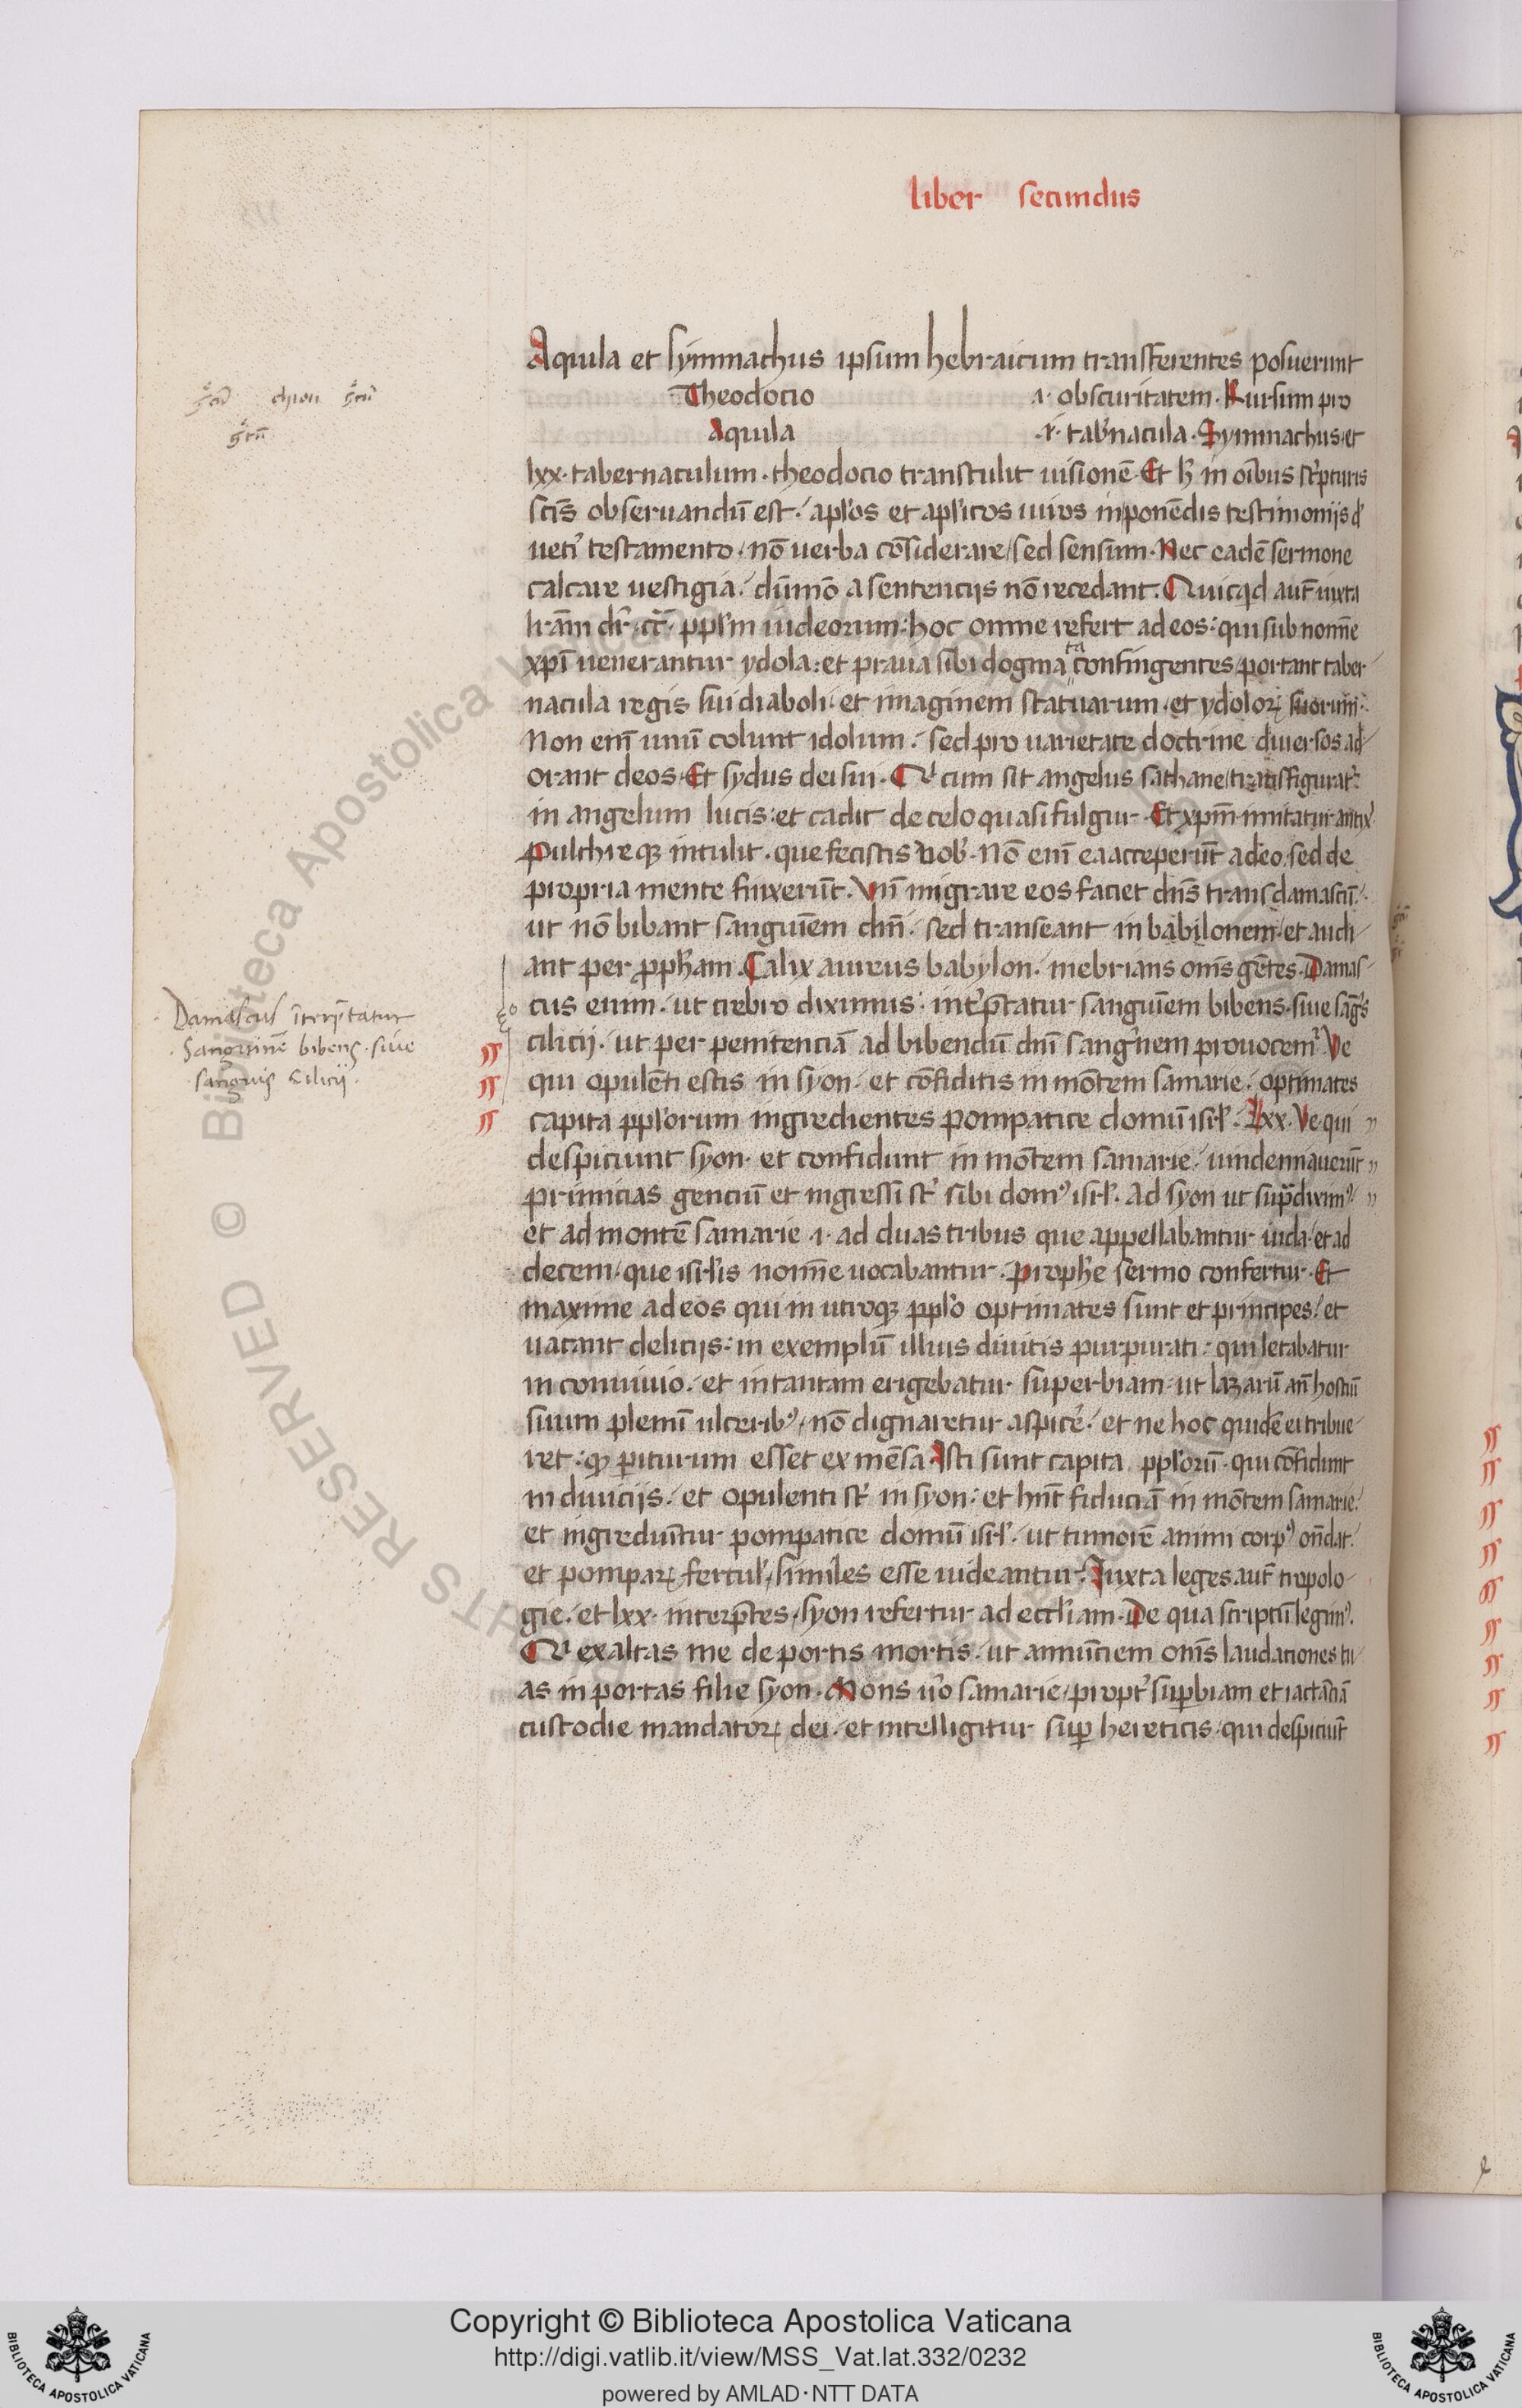 liber secundus
Aquila et symmachus ipsum hebraicum transferentes posuerunt
Theodocio .i. obscuritatem. Rursum pro
Aquila .i. tab'nacula. Symmachus. et
lxx. tabernaculum. theodocio transtulit uisionē. Et h̄ in oībus sc'pturis
scīs obseruandū est. apl'os et apl'icos uiros in ponēdis testimonijs d'
uet'i testamento. nō uerba cōsiderare/ sed sensum. Nec eadē sermone
calcare uestigia. dūmō a sentencijs nō recedant. Quicqd aut̄ iuxta
lr̄am dr̄. ct̄. ppl'm iudeorum: hoc omne refert ad eos: qui sub nomīe
xp̄i uenerantur ydola: et praua sibi dogmata confingentes/ portant taber-
nacula regis sui diaboli. et imaginem statuarum. et ydoloꝝ suorum.
Non em̄ unū colunt idolum. sed pro uarietate doctrine diuersos ad-
orant deos. Et sydus dei sui. Qr cum sit angelus sathane/ transfigurat'
in angelum lucis: et cadit de celo quasi fulgur. Et xpm̄ imitatur antix'
Pulchreqꝫ intulit. que fecistis uob'. Nō em̄ ea acceperūt a deo. sed de
propria mente finxerūt. Vn̄ migrare eos faciet dn̄s trans damascū.
ut nō bibant sanguīem dn̄i. sed transeant in babilonem/ et audi-
ant per ꝓph'am. Calix aureus babylon. inebrians om̄s gētes. Damas-
cus enim. ut crebro diximus: int'p̄tatur sanguīem bibens. siue sāg's
cilicij. ut per penitenciā ad bibendū dn̄i sang'nem prouocem'. Ve
qui opulēti estis in syon. et cōfiditis in mōtem samarie. optimates
capita ppl'orum ingredientes pompatice domū isrl'. Lxx. Ve qui
despiciunt syon. et confidunt in mōtem samarie. uindemiauerūt
primicias genciū et ingressi st' sibi dom' isrl'. Ad syon ut sup̄ dixim'.
et ad montē samarie .i. ad duas tribus que appellabantur iuda. et ad
decem. que isrl'is nomīe uocabantur. Proph'e sermo confertur. Et
maxime ad eos qui in utroqꝫ ppl'o optimates sunt et principes. et
uacant delicijs: in exemplū illius diuitis purpurati: qui letabatur
in conuiuio. et in tantam erigebatur superbiam. ut lazarū an̄ hostiū
suum plenū ulcerib'/ nō dignaretur aspic'e. et ne hoc quidē ei tribue-
ret: qꝫ piturum esset ex mēsa. Isti sunt capita ppl'orū. qui cōfidunt
in diuicijs. et opulenti st' in syon: et hn̄t fiduciā in mōtem samarie.
et ingrediūtur pompatice domū isrl'. ut tumorē animi corp' ondat.
et pompaꝝ fercul'/ similes esse uideantur. Iuxta leges aut̄ tropolo-
gie. et lxx. interp̄tes. syon refertur ad eccl'iam. De qua scriptū legim'.
Qr exaltas me de portis mortis. ut annūciem om̄s laudationes tu-
as in portas filie syon. Mons u'o samarie/ propt' supbiam et iactāciā
custodie mandatoꝝ dei. et intelligitur sup hereticis. qui despiciūt
Damascus īterp̄tatur
Sanguinē bibens. siue
sanguis Cilicij.
BIBLIOTECA APOSTOLICA VATICANA
Copyright © Biblioteca Apostolica Vaticana
http://digi.vatlib.it/view/MSS_Vat.lat.332/0232
powered by AMLAD·NTT DATA
BIBLIOTECA APOSTOLICA VATICANA